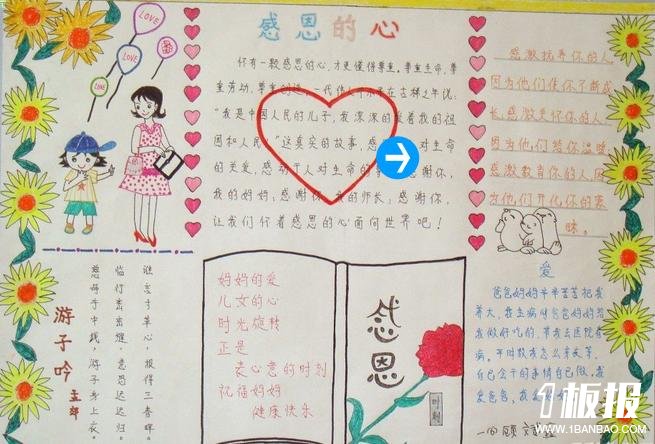 感恩的心
LOVE
LOVE
LOVE
怀有一颗感恩的心,才更懂得尊重。尊重生命、尊
重劳动、尊重创造。一代伟人邓小平在古稀之年说:
“我是中国人民的儿子,我深深的爱着我的祖
国和人民。”这真实的故事,感 对生命
的关爱,感动于人对生命的 感谢你,
我的妈妈;感谢你,我的师长;感谢你,
让我们怀着感恩的心面向世界吧!
感激抚养你的人
因为他们使你不断成
长,感激关怀你的人,
因为他们给你温暖,
感激教育你的人,因
为他们开化你的蒙
昧。
游子吟
慈母手中线,游子身上衣。
临行密密缝,意恐迟迟归。
谁言寸草心,报得三春晖。
妈妈的爱
儿女的心
时光旋转
正是
表心意的时刻
祝福妈妈
健康快乐
感恩
爱
爸爸妈妈辛辛苦苦把我
养大,我生病时爸爸妈妈给
我做好吃的,带我去医院看
病。平时教我怎么
自己会干的事情自己做。我
爱爸爸,我爱妈
1板报
WWW.1BANBAO.COM